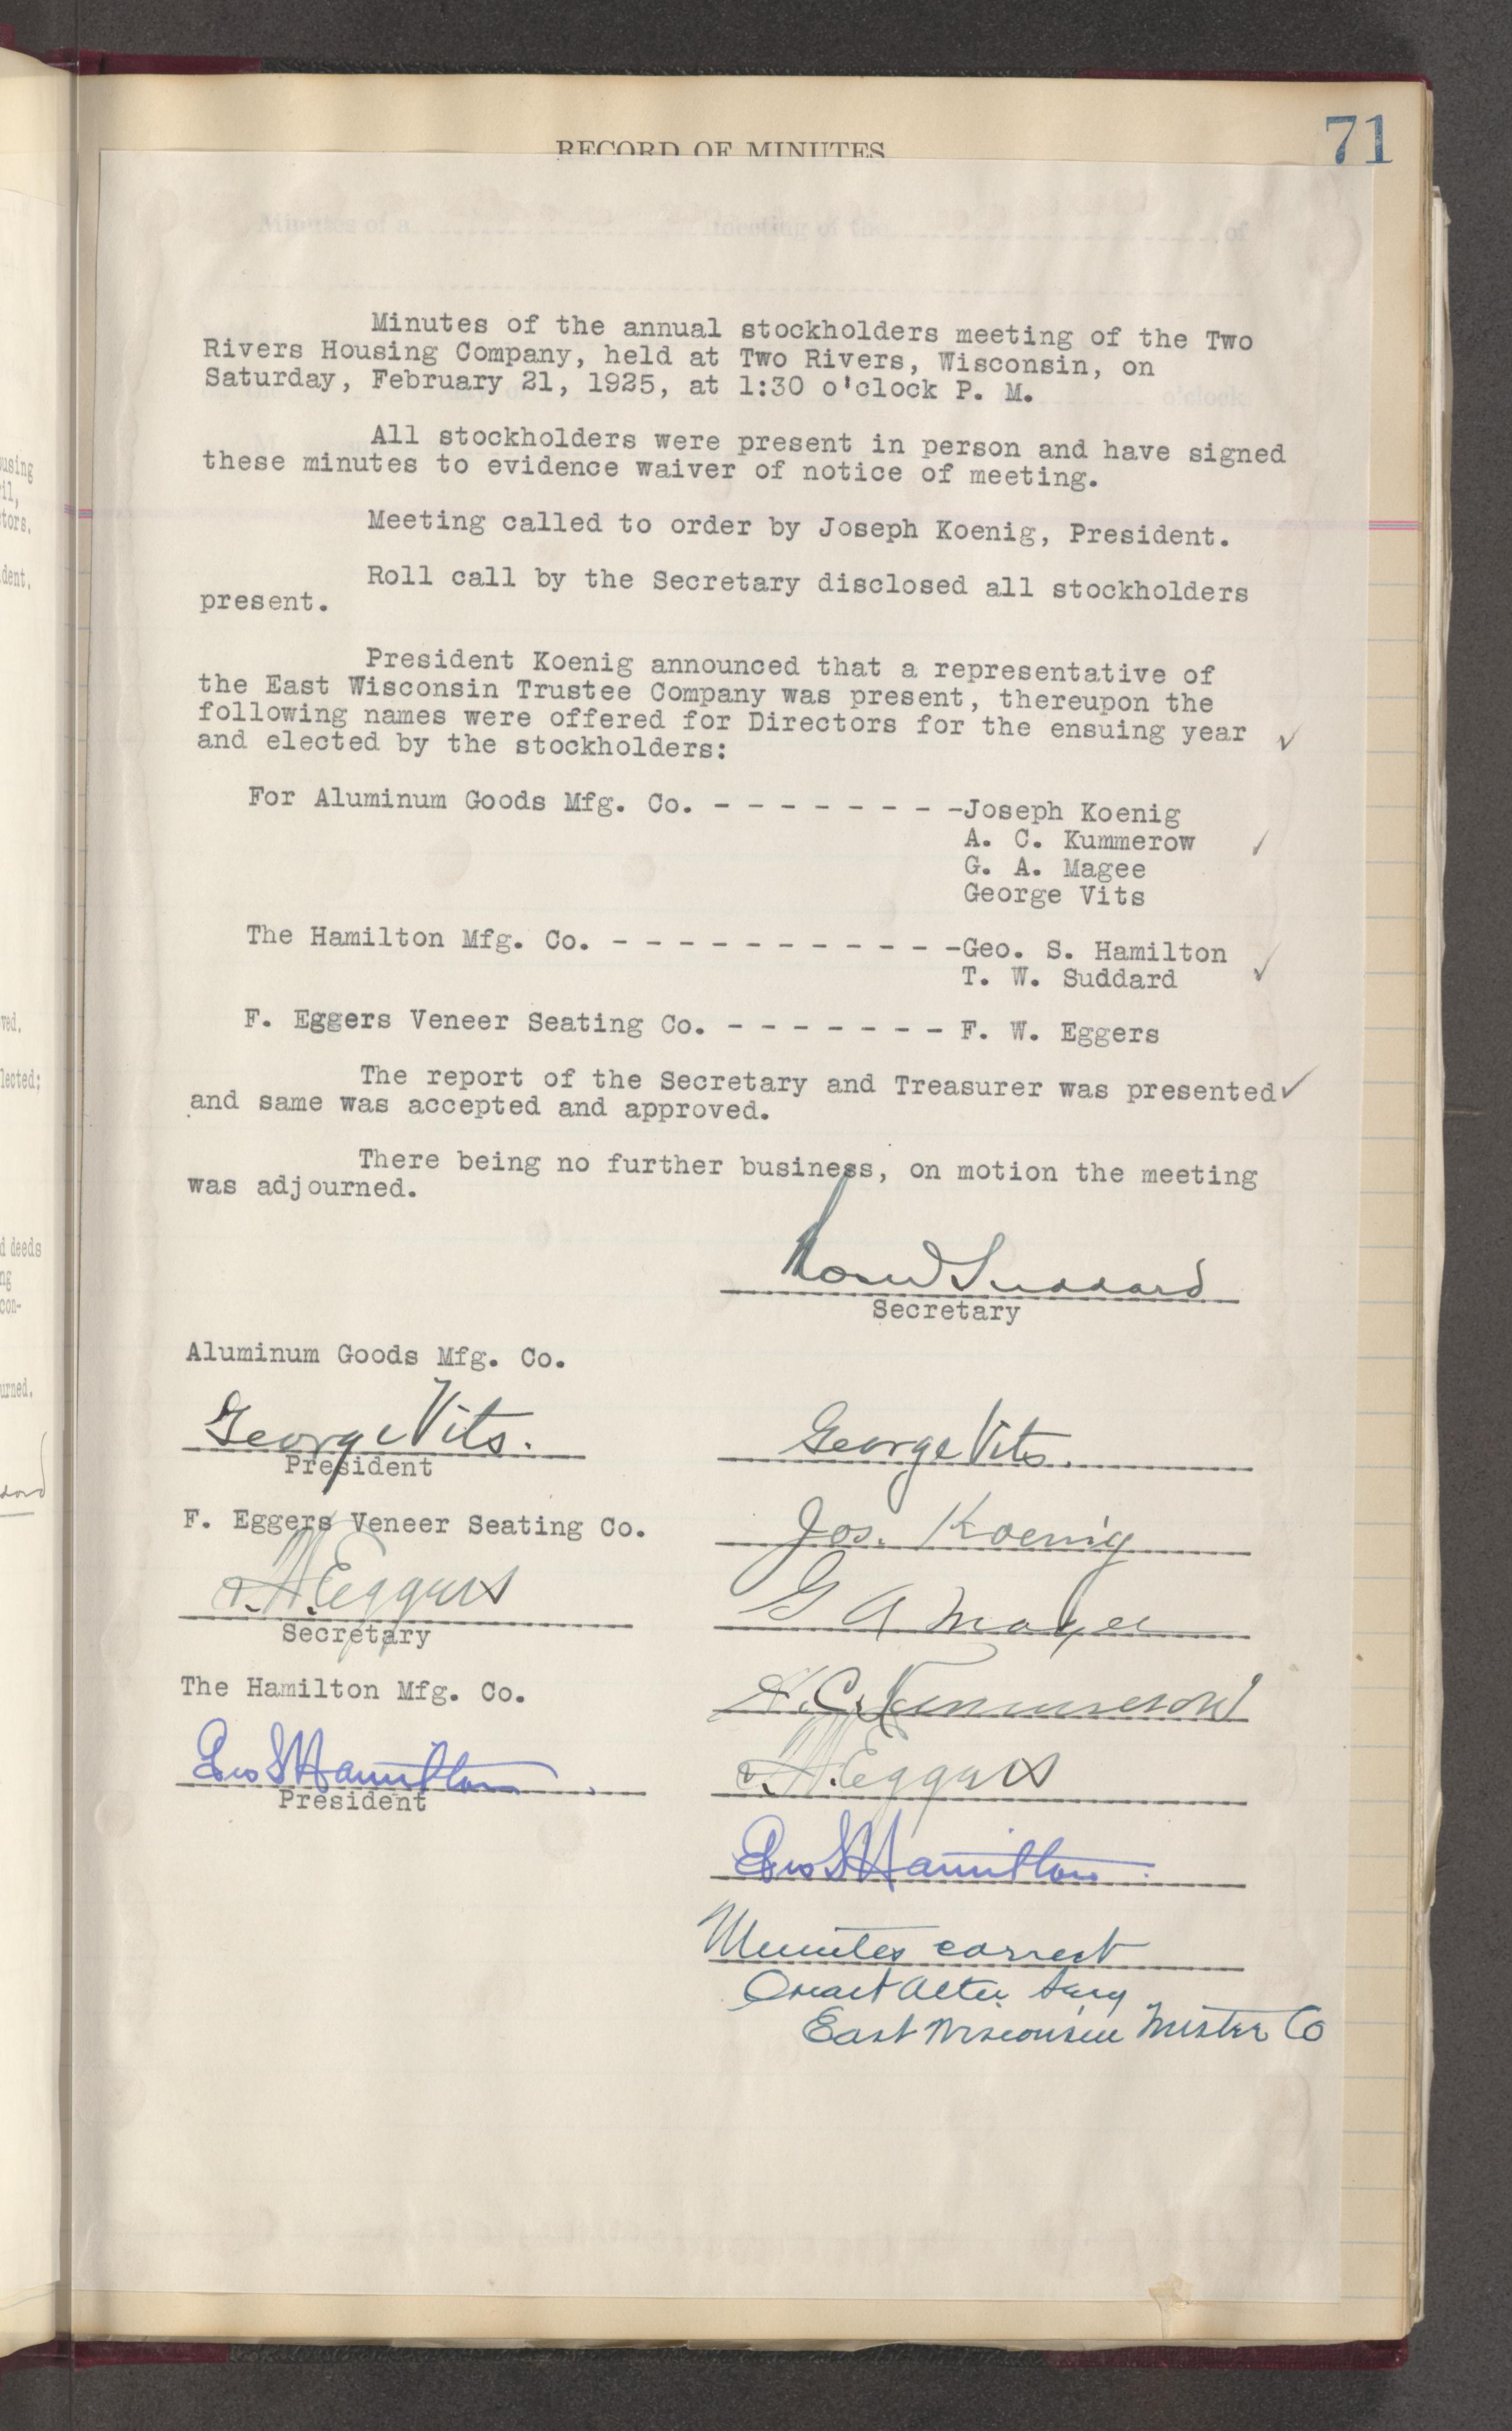 71
RECORD OF MINUTES
Minutes of a meeting of the of
o'clock
Minutes of the annual stockholders meeting of the Two
Rivers Housing Company, held at Two Rivers, Wisconsin, on
Saturday, February 21, 1925, at 1:30 o'clock P. M.
All stockholders were present in person and have signed
these minutes to evidence waiver of notice of meeting.
Meeting called to order by Joseph Koenig, President.
Roll call by the Secretary disclosed all stockholders
present.
President Koenig announced that a representative of
the East Wisconsin Trustee Company was present, thereupon the
following names were offered for Directors for the ensuing year ✓
and elected by the stockholders:
For Aluminum Goods Mfg. Co. - - - - - - - -Joseph Koenig
A. C. Kummerow ✓
G. A. Magee
George Vits
The Hamilton Mfg. Co. - - - - - - - - - - -Geo. S. Hamilton
T. W. Suddard ✓
F. Eggers Veneer Seating Co. - - - - - - - F. W. Eggers
The report of the Secretary and Treasurer was presented ✓
and same was accepted and approved.
There being no further business, on motion the meeting
was adjourned.
Thos W Suddard
Secretary
Aluminum Goods Mfg. Co.
George Vits.
President
George Vits.
F. Eggers Veneer Seating Co.
Jos. Koenig
Eggers
Secretary
G A Magee
The Hamilton Mfg. Co.
A. C. Kummerow
Geo S Hamilton
President
Eggers
Geo S Hamilton
Minutes correct
East Wisconsin Trustee Co
using
il,
tors.
dent.
ved.
lected;
d deeds
ng
con-
urned.